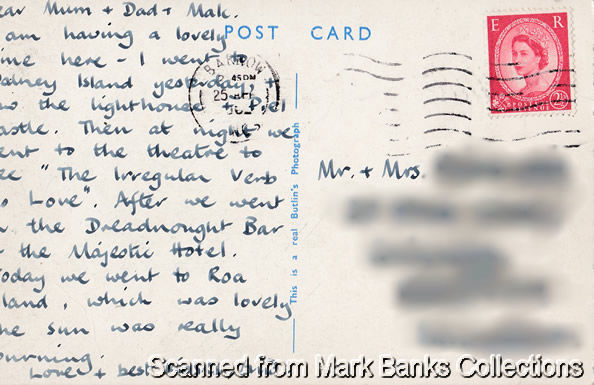 ear Mum + Dad + Malc.
am having a lovely
ime here - I went to
alney Island yesterday +
aw the lighthouse + Piel
astle. Then at night we
ent to the theatre to
ee "The Irregular Verb
o Love". After we went
the Dreadnought Bar
the Majestic Hotel.
oday we went to Roa
sland, which was lovely
he sun was really
urning.
Love + best
POST CARD
BARROW
45 PM
25
This is a real Butlin's Photograph
E R
POSTAGE
2½
Mr. + Mrs.
Scanned from Mark Banks Collections